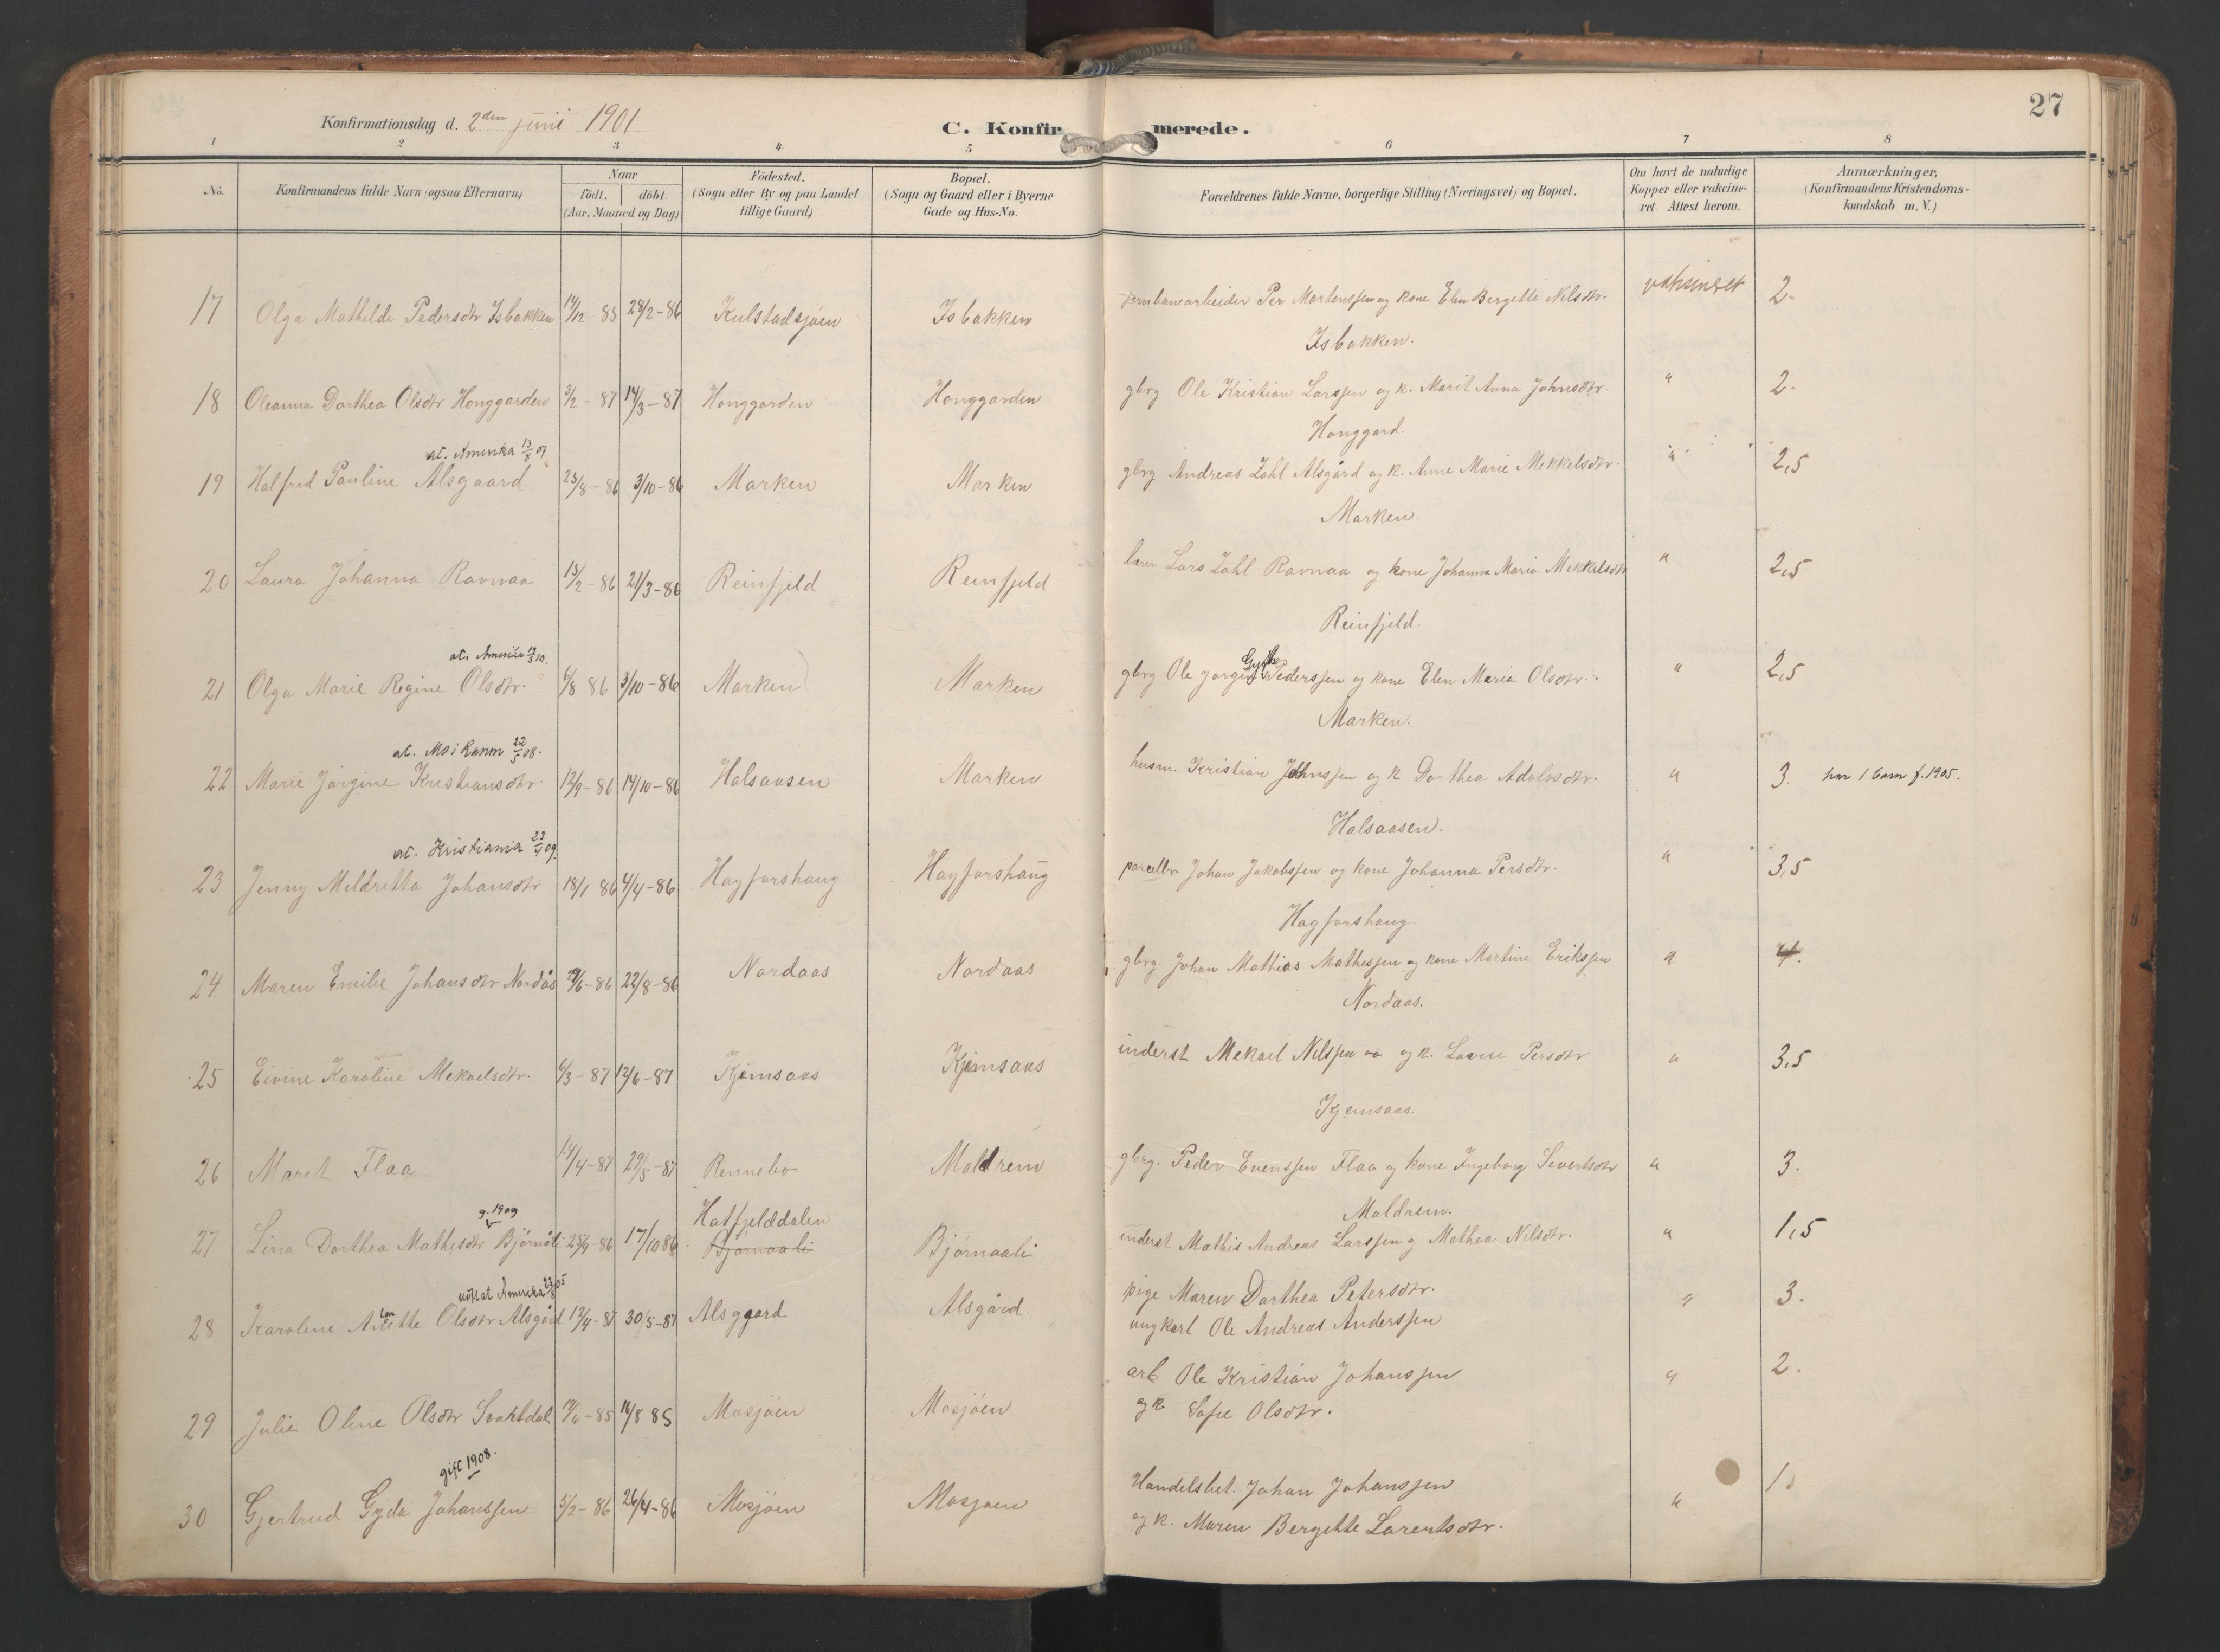 27
Konfirmationsdag d. 2den juni 1901
C. Konfirmerede.
1 2 3 4 5 6 7 8
No. Konfirmandens fulde Navn (ogsaa Efternavn) Naar födt. döbt. (Aar, Maaned og Dag) Födested. (Sogn eller By og paa Landet tillige Gaard) Bopæl. (Sogn og Gaard eller i Byerne Gade og Hus-No. Forældrenes fulde Navne, borgerlige Stilling (Næringsvei) og Bopæl. Om havt de naturlige Kopper eller vakcineret. Attest herom. Anmærkninger, (Konfirmandens Kristendomskundskab m. V.)
17 Olga Mathilde Pedersdtr Isbakken 14/12-85 28/2-86 Kulstadsjöen Isbakken jernbanearbeider Per Mortenssen og kone Elen Bergette Nilsdtr. vaksineret 2-
Isbakken.
18 Oleanna Dorthea Olsdtr Honggarden 3/2-87 14/3-87 Honggarden Honggarden gbrg Ole Kristian Larssen og k. Marit Anna Johnsdtr. " 2-
Honggard.
at. Amerika 13/8 07
19 Halfrid Pauline Alsgaard 23/8-86 3/10-86 Marken Marken gbrg Andreas Zahl Alsgård og k. Anne Marie Mekkelsdtr. " 2,5
Marken.
20 Laura Johanna Ravnaa 13/2-86 21/3-86 Reinfjeld Reinfjeld Lars Zahl Ravnaa og kone Johanna Maria Mekkelsdtr " 2,5
Reinfjeld.
at. Amerika 12/3 10.
21 Olga Marie Regine Olsdtr. 6/8 86 3/10-86 Marken Marken gbrg Ole Jorgen Pederssen og kone Elen Maria Olsdtr. " 2,5
Marken.
at. Mo i Ranen 22/5 08.
22 Marie Jörgine Kristiansdtr. 12/9-86 14/10-86 Halsaasen Marken husm. Kristian Johnssen og k Dorthea Adolvsdtr. " 3. har 1 barn f. 1905.
Halsaasen.
at. Kristiania 23/4 09.
23 Jenny Meldritta Johansdtr 18/1 86 4/4-86 Hagforshaug Hagforshaug parcellbr Johan Jakobssen og kone Johanna Persdtr. " 3,5
Hagforshaug
24 Maren Emilie Johansdtr Nordås /6-86 22/8-86 Nordaas Nordaas gbrg Johan Mathias Mathissen og kone Martine Erikssen " 4.
Nordaas.
25 Eivine Karoline Mekaelsdtr. 6/3-87 12/6-87 Kjemsaas Kjemsaas inderst Mekael Nilssen og k. Lovise Persdtr " 3,5
Kjemsaas.
26 Marit Flaa 14/4-87 29/5-87 Rennebo Maldrem gbrg. Peder Evenssen Flaa og kone Ingeborg Sivertsdtr " 3.
Maldaem.
g. 1909
27 Lina Dorthea Mathisdtr Björnåli 28/9-86 17/10 86 Hatfjelddalen Björnaali Björnaali inderst Mathis Andreas Larssen og Mathea Nilsdtr. " 1,5
at Amerika 23/8 05
28 Karoline Olsdtr Alsgård 12/4-87 30/5-87 Alsgaard Alsgård pige Maren Dorthea Petersdtr. " 3.
ungkarl Ole Andreas Anderssen
29 Julie Oline Olsdtr Svaltdal /6-85 16/8 85 Mosjöen Mosjöen arb Ole Kristian Johanssen " 2.
og k Sofie Olsdtr.
gift 1908.
30 Gjertrud Gyda Johanssen 5/2-86 26/4-86 Mosjöen Mosjöen Handelsbet. Johan Johanssen " 1.
og k. Maren Bergette Larentsdtr.